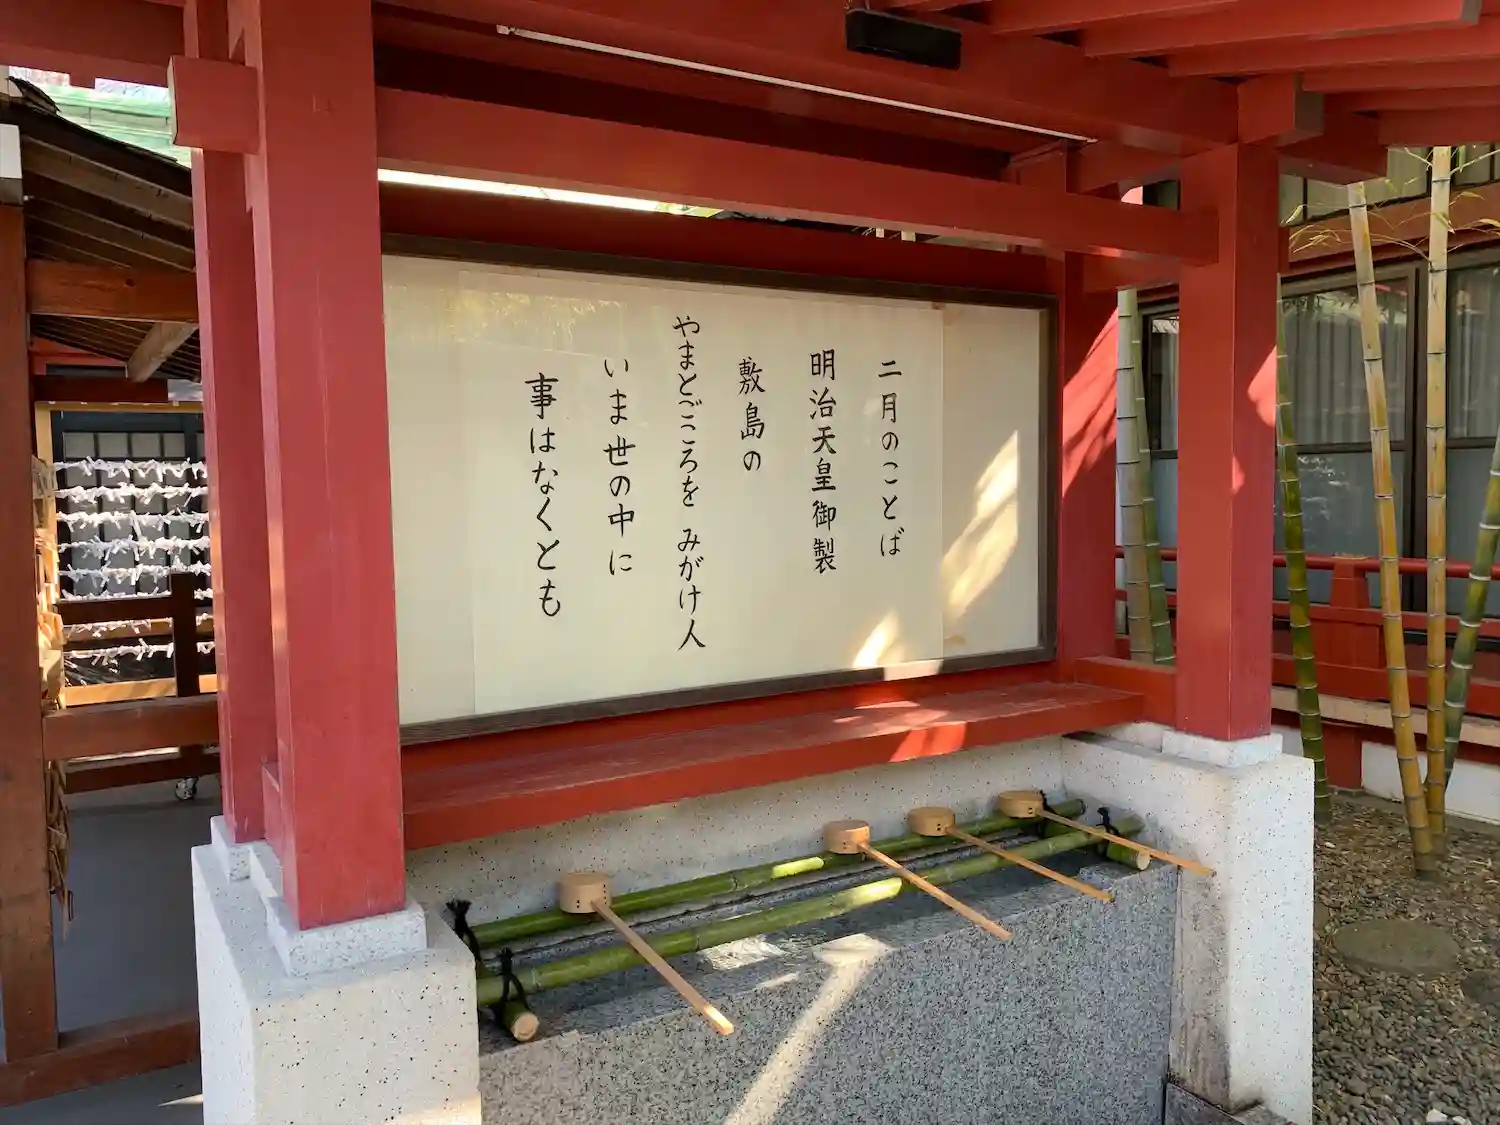 二月のことば
明治天皇御製
敷島の
やまとごころを みがけ人
いま世の中に
事はなくとも